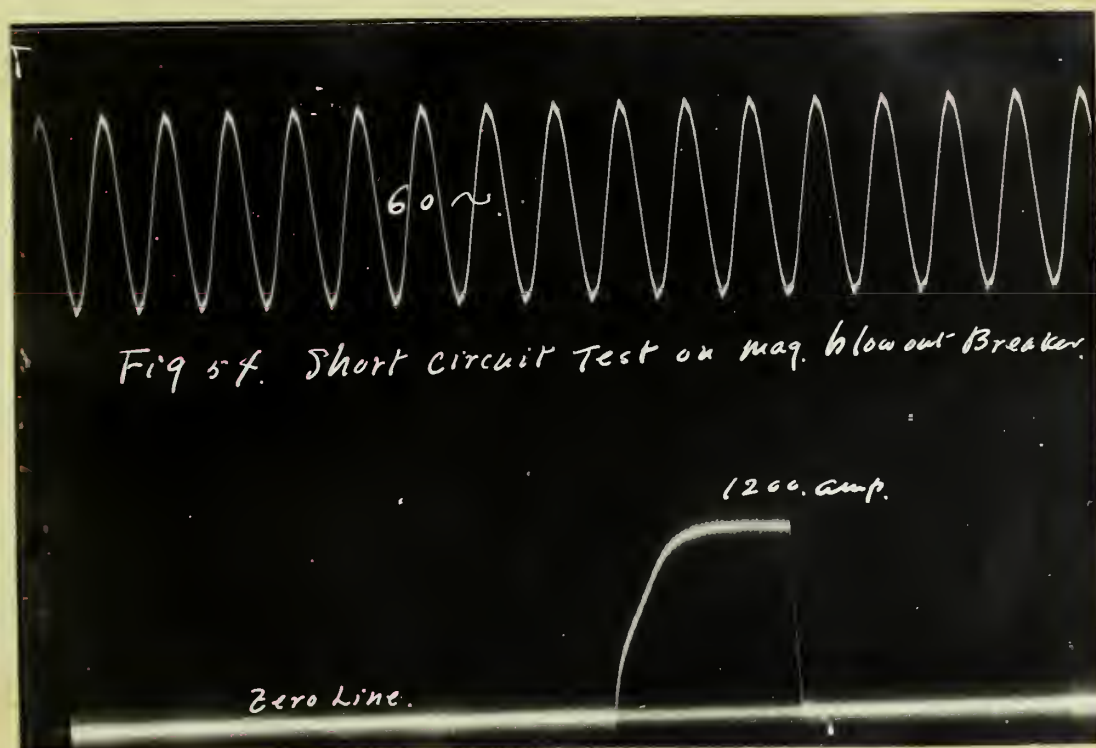 60 ~.
Fig 54. Short circuit Test on mag. blowout Breaker.
1200. amp.
Zero Line.